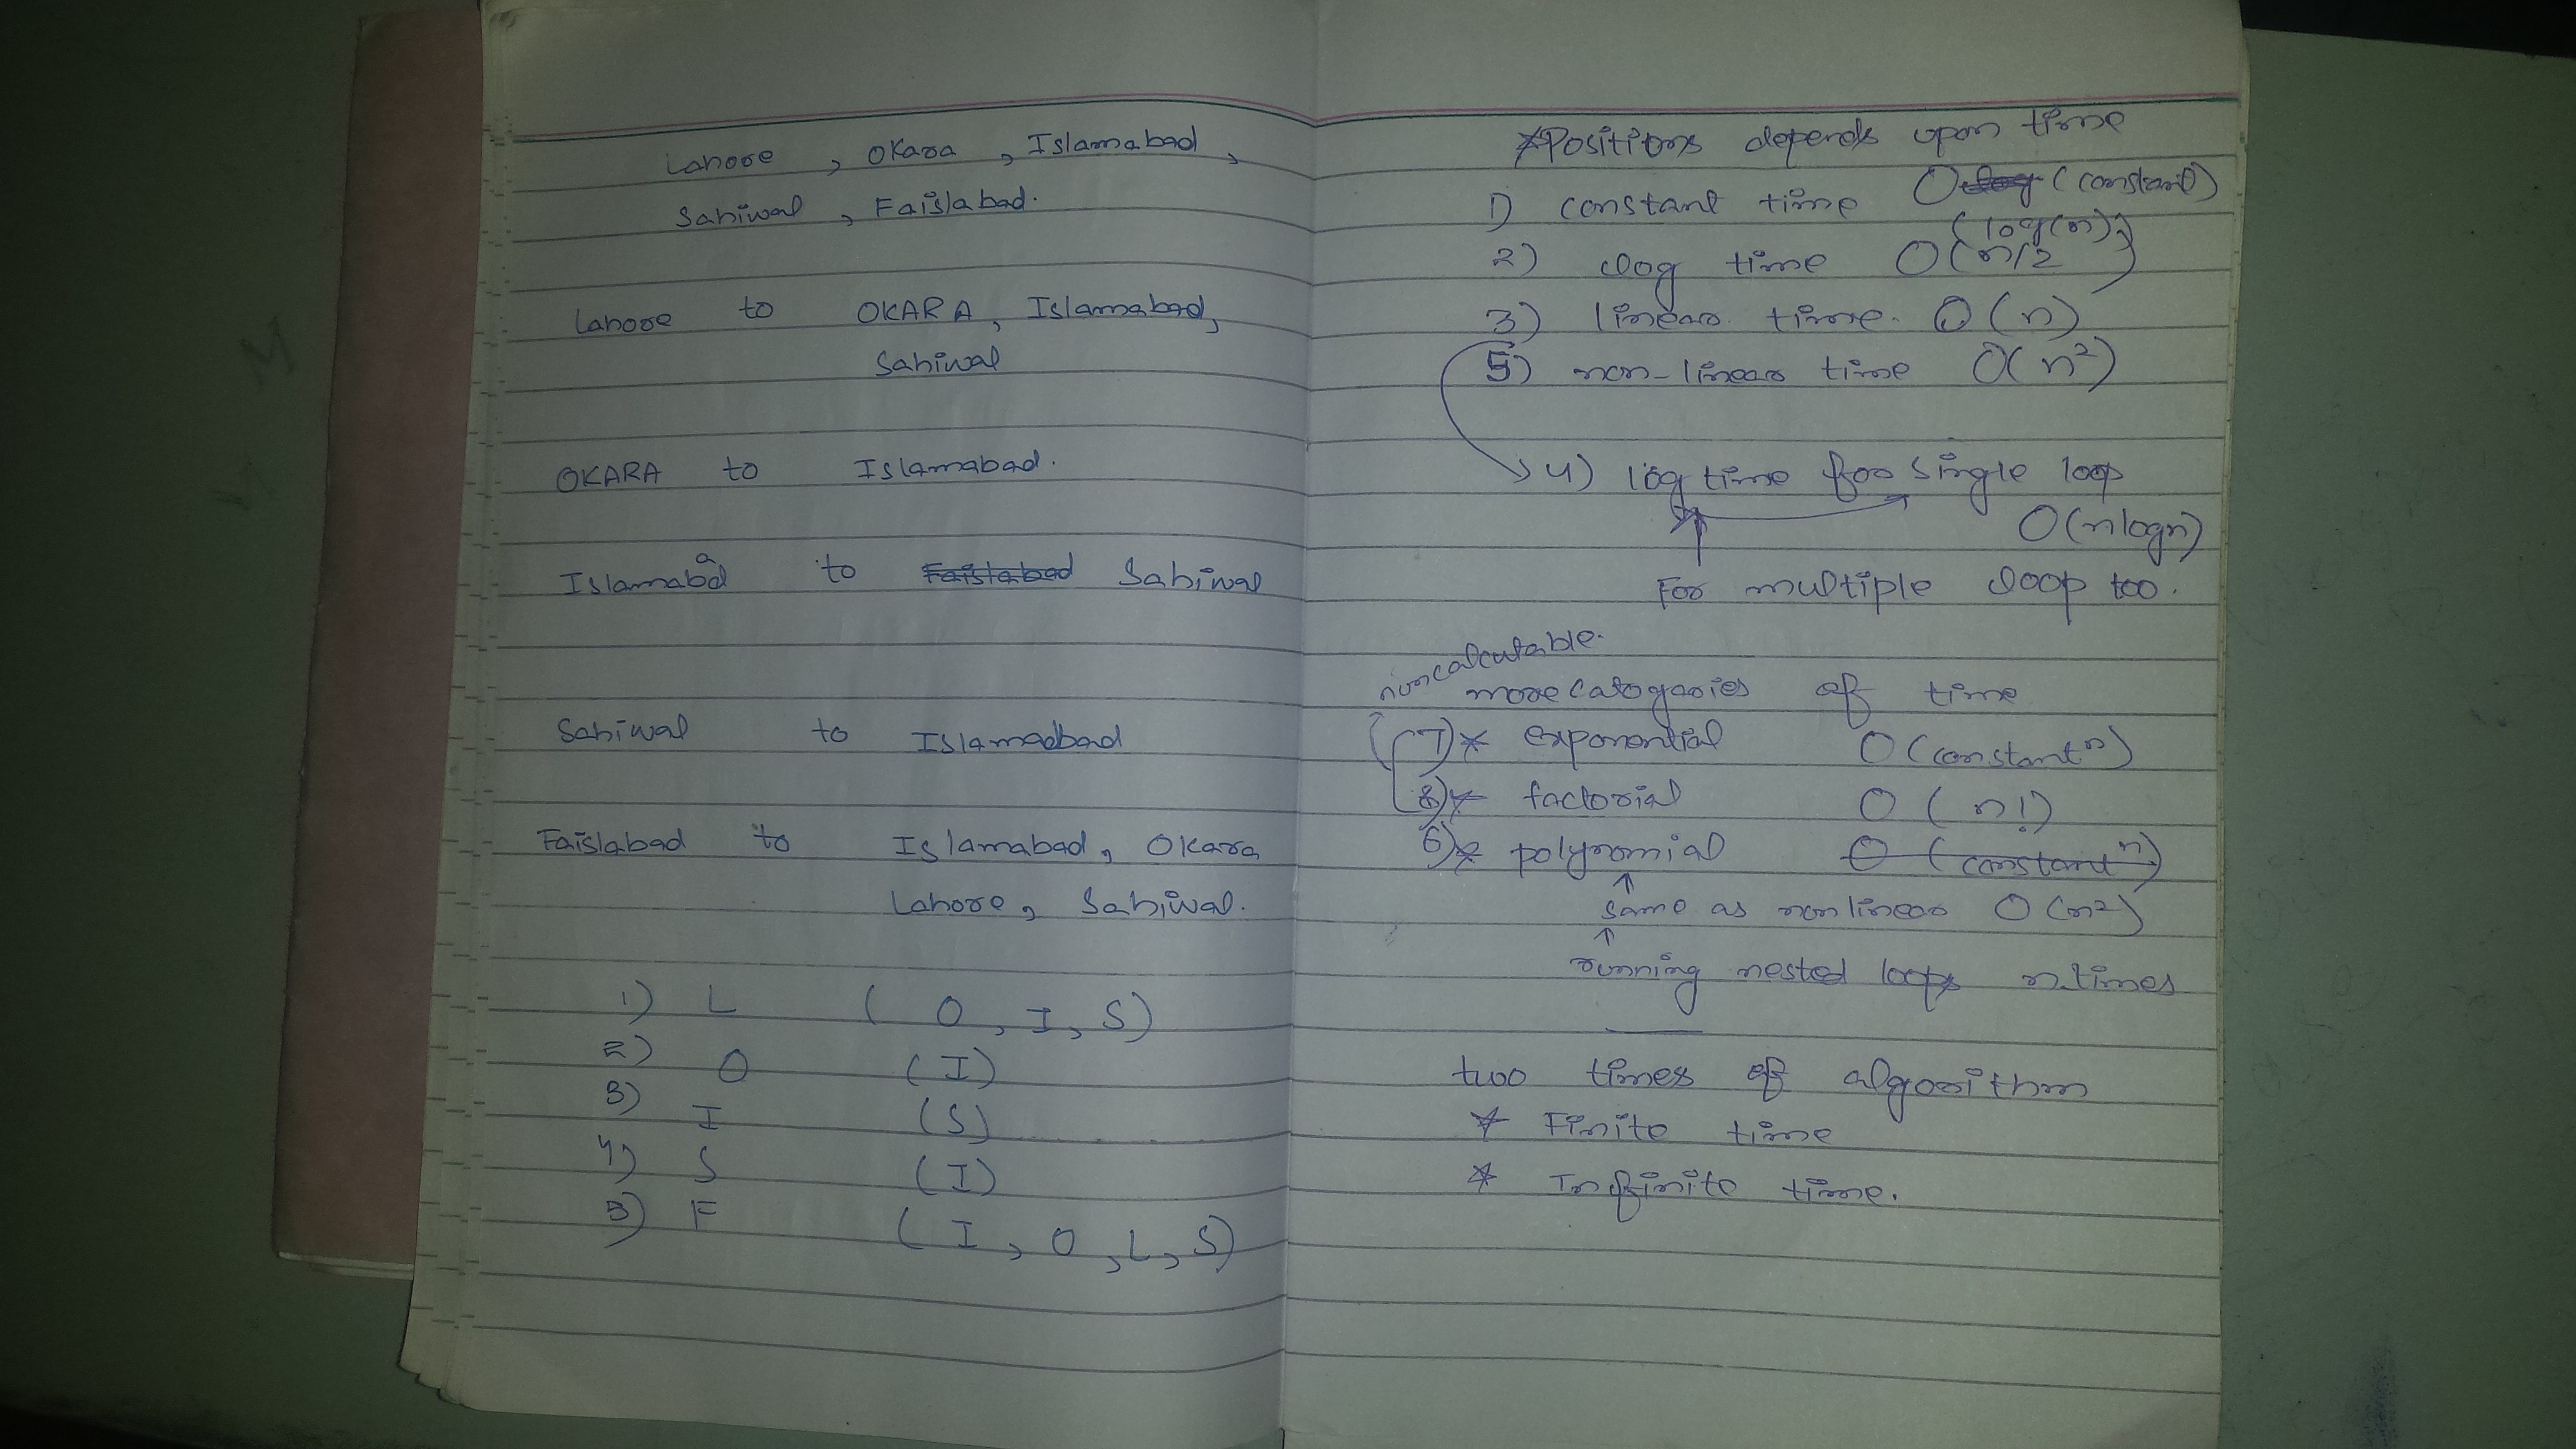 Lahore , Okara , Islamabad ,
Sahiwal , Faislabad.
Lahore to OKARA, Islamabad,
Sahiwal
OKARA to Islamabad.
Islamabad to Faislabad Sahiwal
Sahiwal to Islamadbad
Faislabad to Islamabad, Okara
Lahore, Sahiwal.
1) L ( O, I, S)
2) O ( I )
3) I ( S )
4) S ( I )
5) F ( I, O, L, S)
*Positions depends upon time
1) constant time O log (constant)
(log(n))
2) log time O(n/2)
3) linear time. O(n)
5) non-linear time O(n²)
4) log time for single loop
O(nlogn)
For multiple loop too.
non calcutable.
more catogaries of time
7)* exponential O(constantⁿ)
8)* factorial O(n!)
6)* polynomial O (constantⁿ)
same as nonlinear O(n²)
running nested loops n.times
two times of algorithm
* Finite time
* Infinite time.